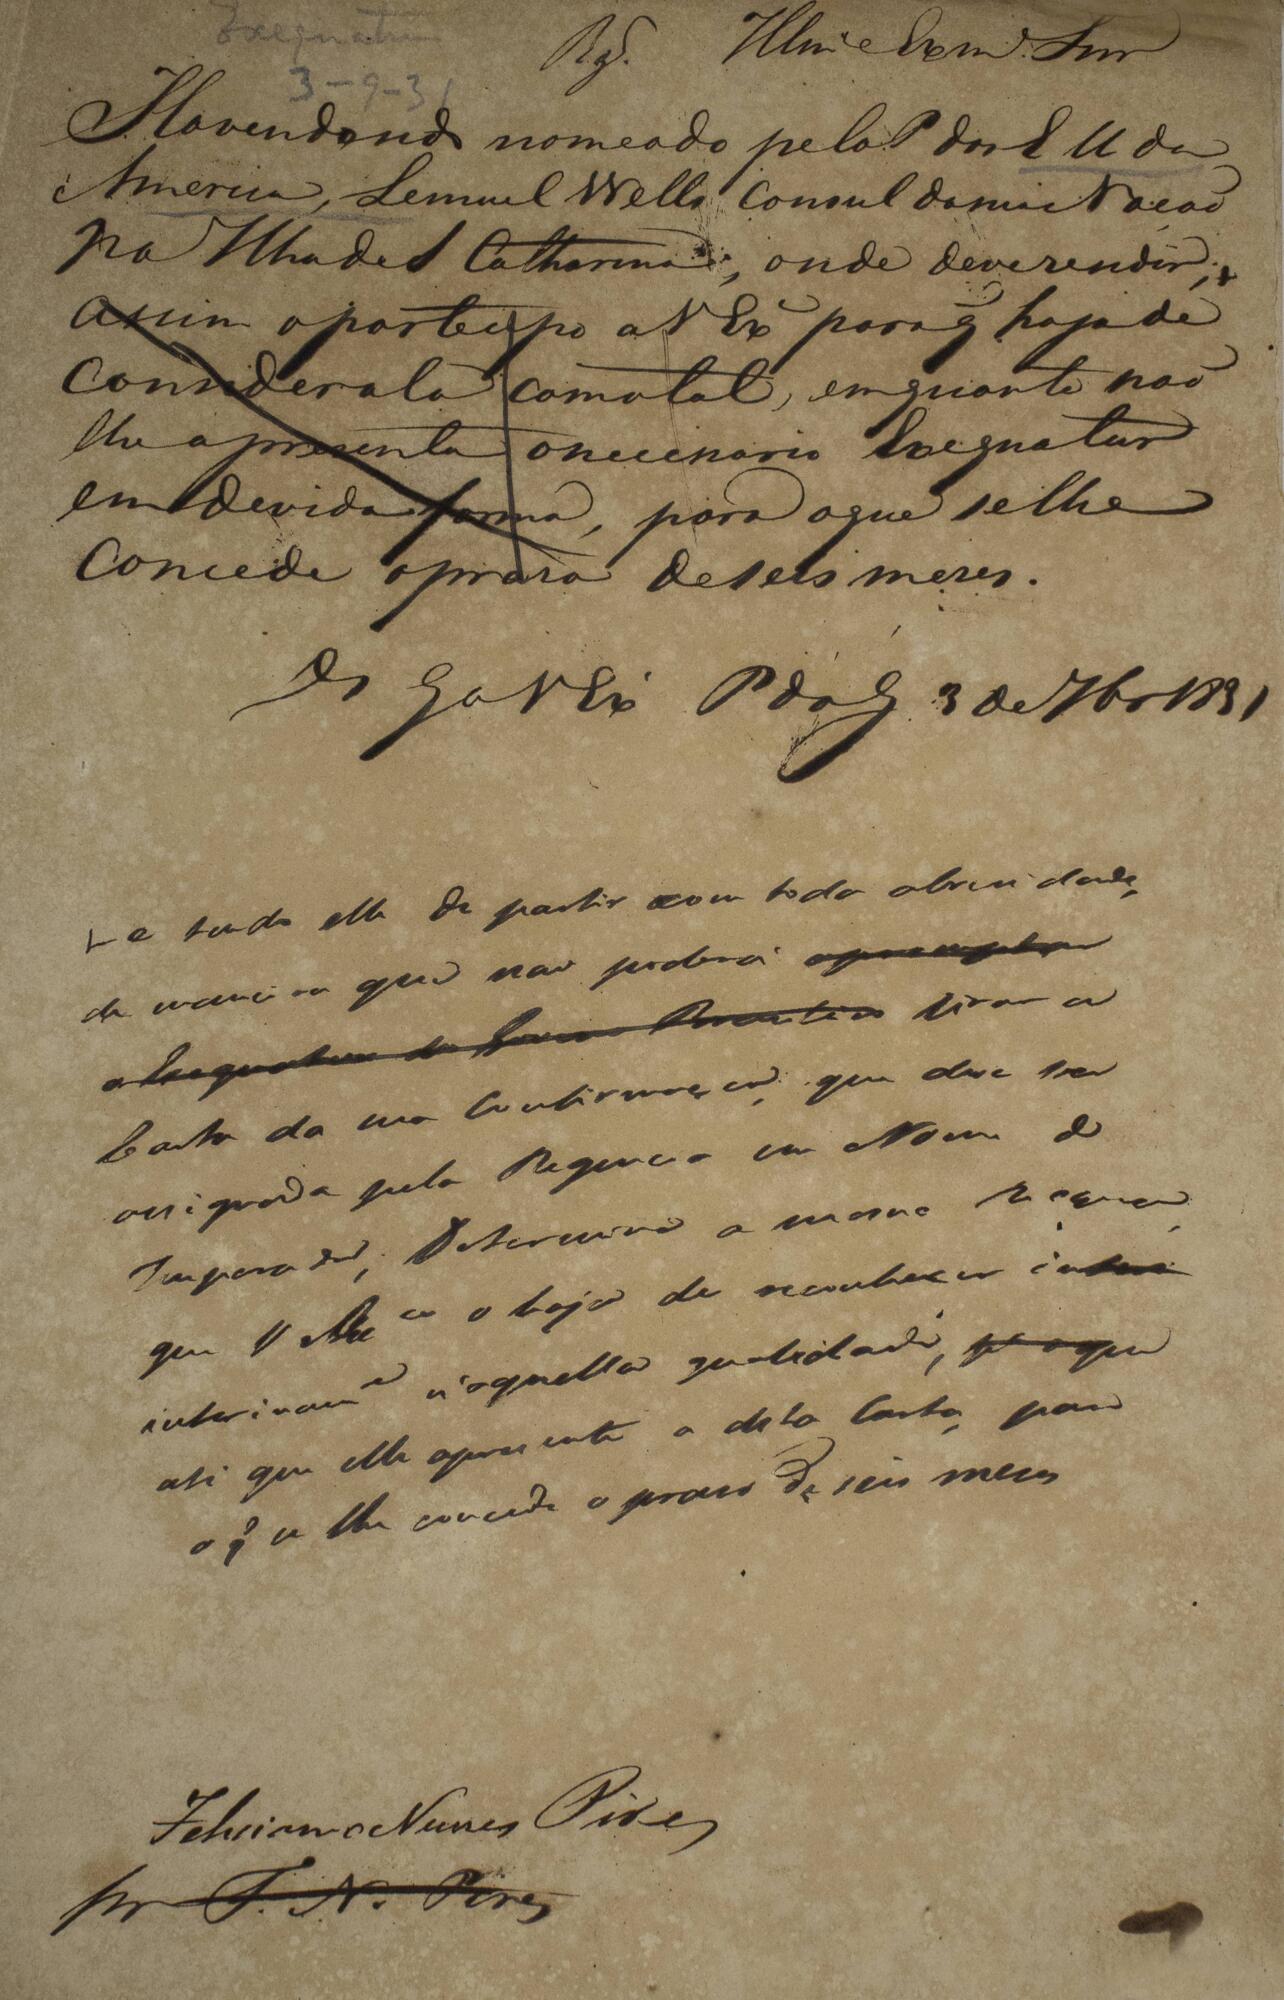 Exequatur
3-9-31
Rg. Illm e Exmo Snr
Havendo sido nomeado pelo P dos E U da
America, Lemuel Wells Consul da mma Nação
na Ilha de S Catharina, onde deve rendir, +
assim o participo a V Exa para q haja de
considerala como tal, emquanto não
lhe apresenta o necessario Exequatur
em devida forma, para o que se lhe
concede o praso de seis mezes.
Ds Ge a V Ex P do G 3 de 7bro 1831
+ e tendo elle de partir com toda a brevidade,
de maneira que nao poderá apresentar
o Exequatur do Governo Brasileiro tirar a
Carta da sua Confirmação, que deve ser
assignada pela Regencia em Nome do
Imperador, Determina a mesma Regencia,
que V Exca o haja de reconhecer inter
interinamte n'aquella qualidade, pa o que
até que elle apresente a dita Carta, para
o q se lhe concede o praso de seis meses
Feliciano Nunes Pires
pr F. N. Pires